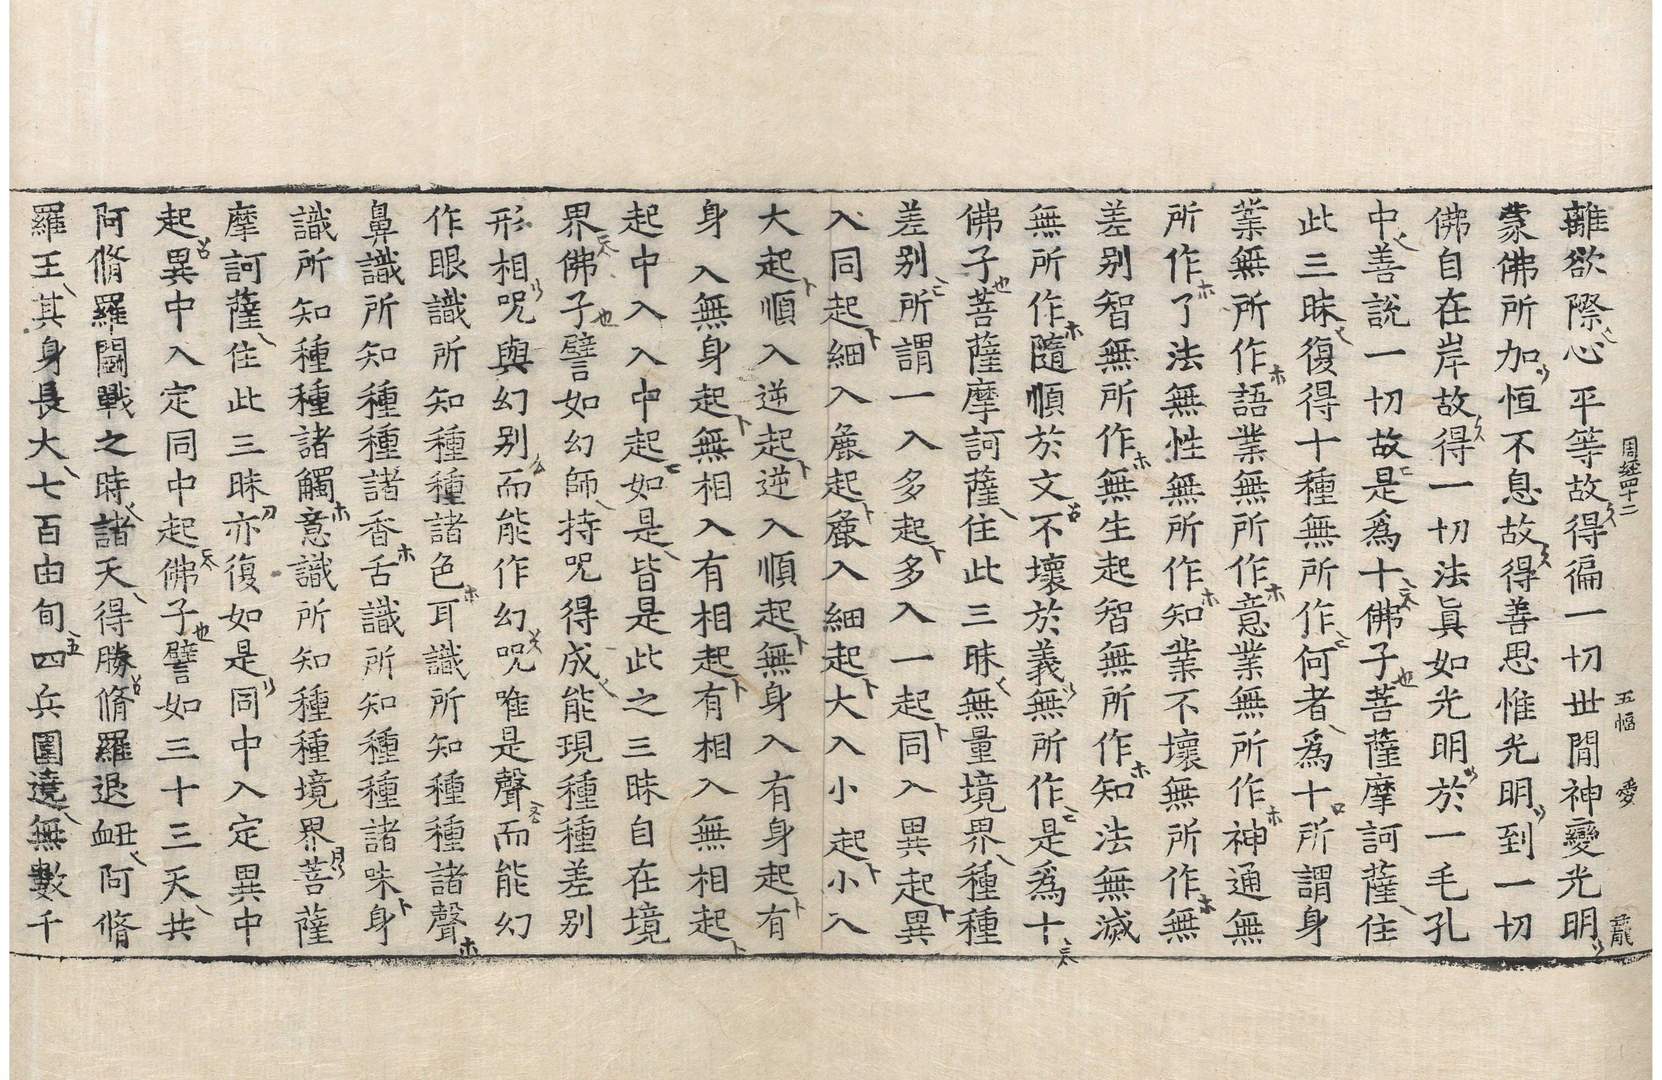 周經四十二 五幅 愛 
離欲際心平等故得徧一切世間神變光明
蒙佛所加恒不息故得善思惟光明到一切
佛自在岸故得一切法眞如光明於一毛孔
中善說一切故是爲十佛子菩薩摩訶薩住
此三昧復得十種無所作何者爲十所謂身
業無所作語業無所作意業無所作神通無
所作了法無性無所作知業不壞無所作無
差别智無所作無生起智無所作知法無滅
無所作隨順於文不壞於義無所作是爲十
佛子菩薩摩訶薩住此三昧無量境界種種
差别所謂一入多起多入一起同入異起異
入同起細入麁起麁入細起大入小起小入
大起順入逆起逆入順起無身入有身起有
身入無身起無相入有相起有相入無相起
起中入入中起如是皆是此之三昧自在境
界佛子譬如幻師持呪得成能現種種差别
形相呪與幻别而能作幻呪唯是聲而能幻
作眼識所知種種諸色耳識所知種種諸聲
鼻識所知種種諸香舌識所知種種諸味身
識所知種種諸觸意識所知種種境界菩薩
摩訶薩住此三昧亦復如是同中入定異中
起異中入定同中起佛子譬如三十三天共
阿脩羅鬪戰之時諸天得勝脩羅退衄阿脩
羅王其身長大七百由旬四兵圍遶無數千